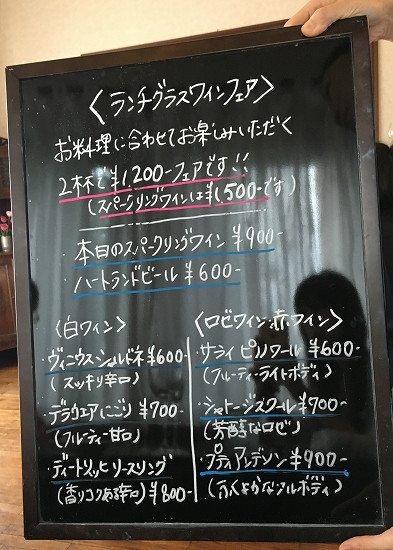 〈ランチグラスワインフェア〉
お料理に合わせてお楽しみいただく
2杯で¥1,200-フェアです!!
(スパークリングワインは¥1,500-です)
・本日のスパークリングワイン ¥900-
・ハートランドビール ¥600-
〈白ワイン〉
・ヴィニウス シャルドネ ¥600-
(スッキリ辛口)
・デラウェアにごり ¥700-
(フルーティー甘口)
・ディートリッヒ リースリング
(香りコクある辛口) ¥800-
〈ロゼワイン・赤ワイン〉
・サライ ピノノワール ¥600-
(フルーティ・ライトボディ)
・シャトージスクール ¥700-
(芳醇なロゼ)
・プティアンデソン ¥900-
(ふくよかなフルボディ)